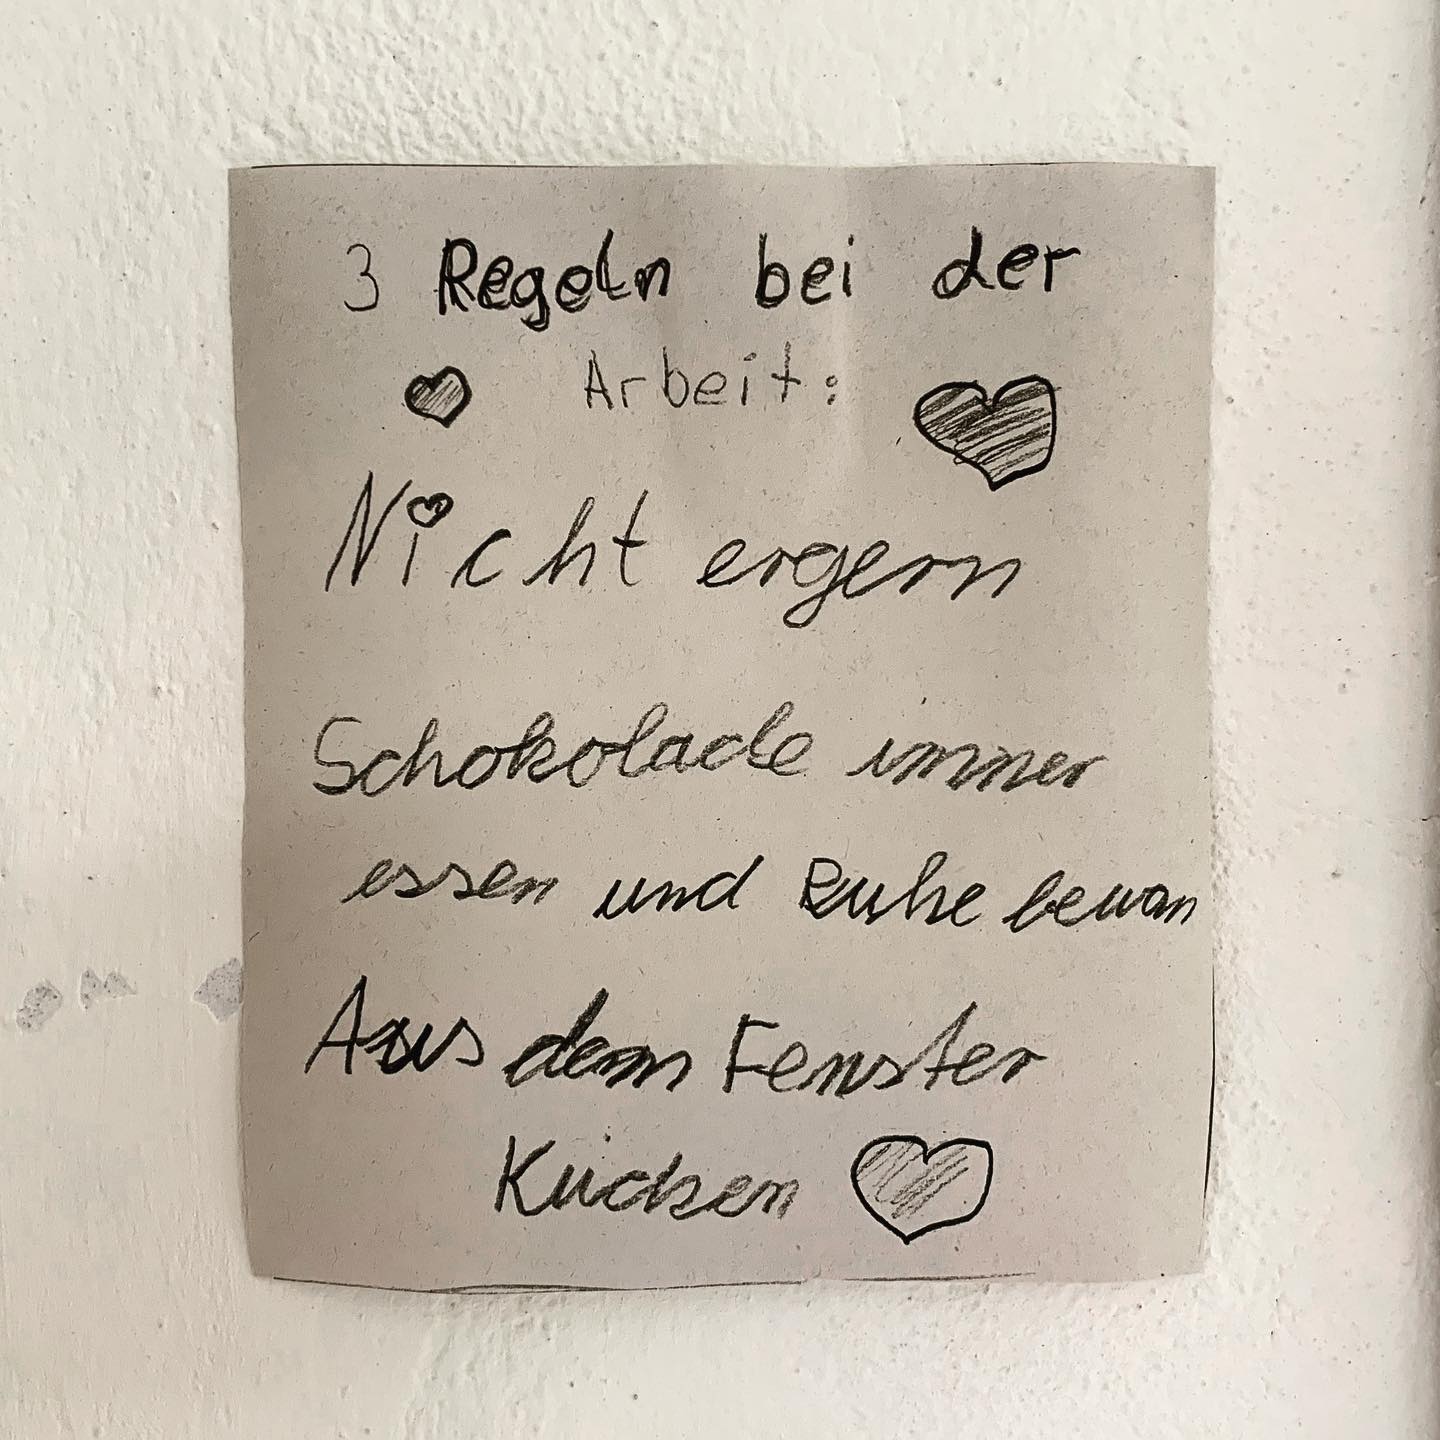 3 Regeln bei der
Arbeit:
Nicht ergern
Schokolade immer
essen und Ruhe bewan
Aus dem Fenster
Kucken